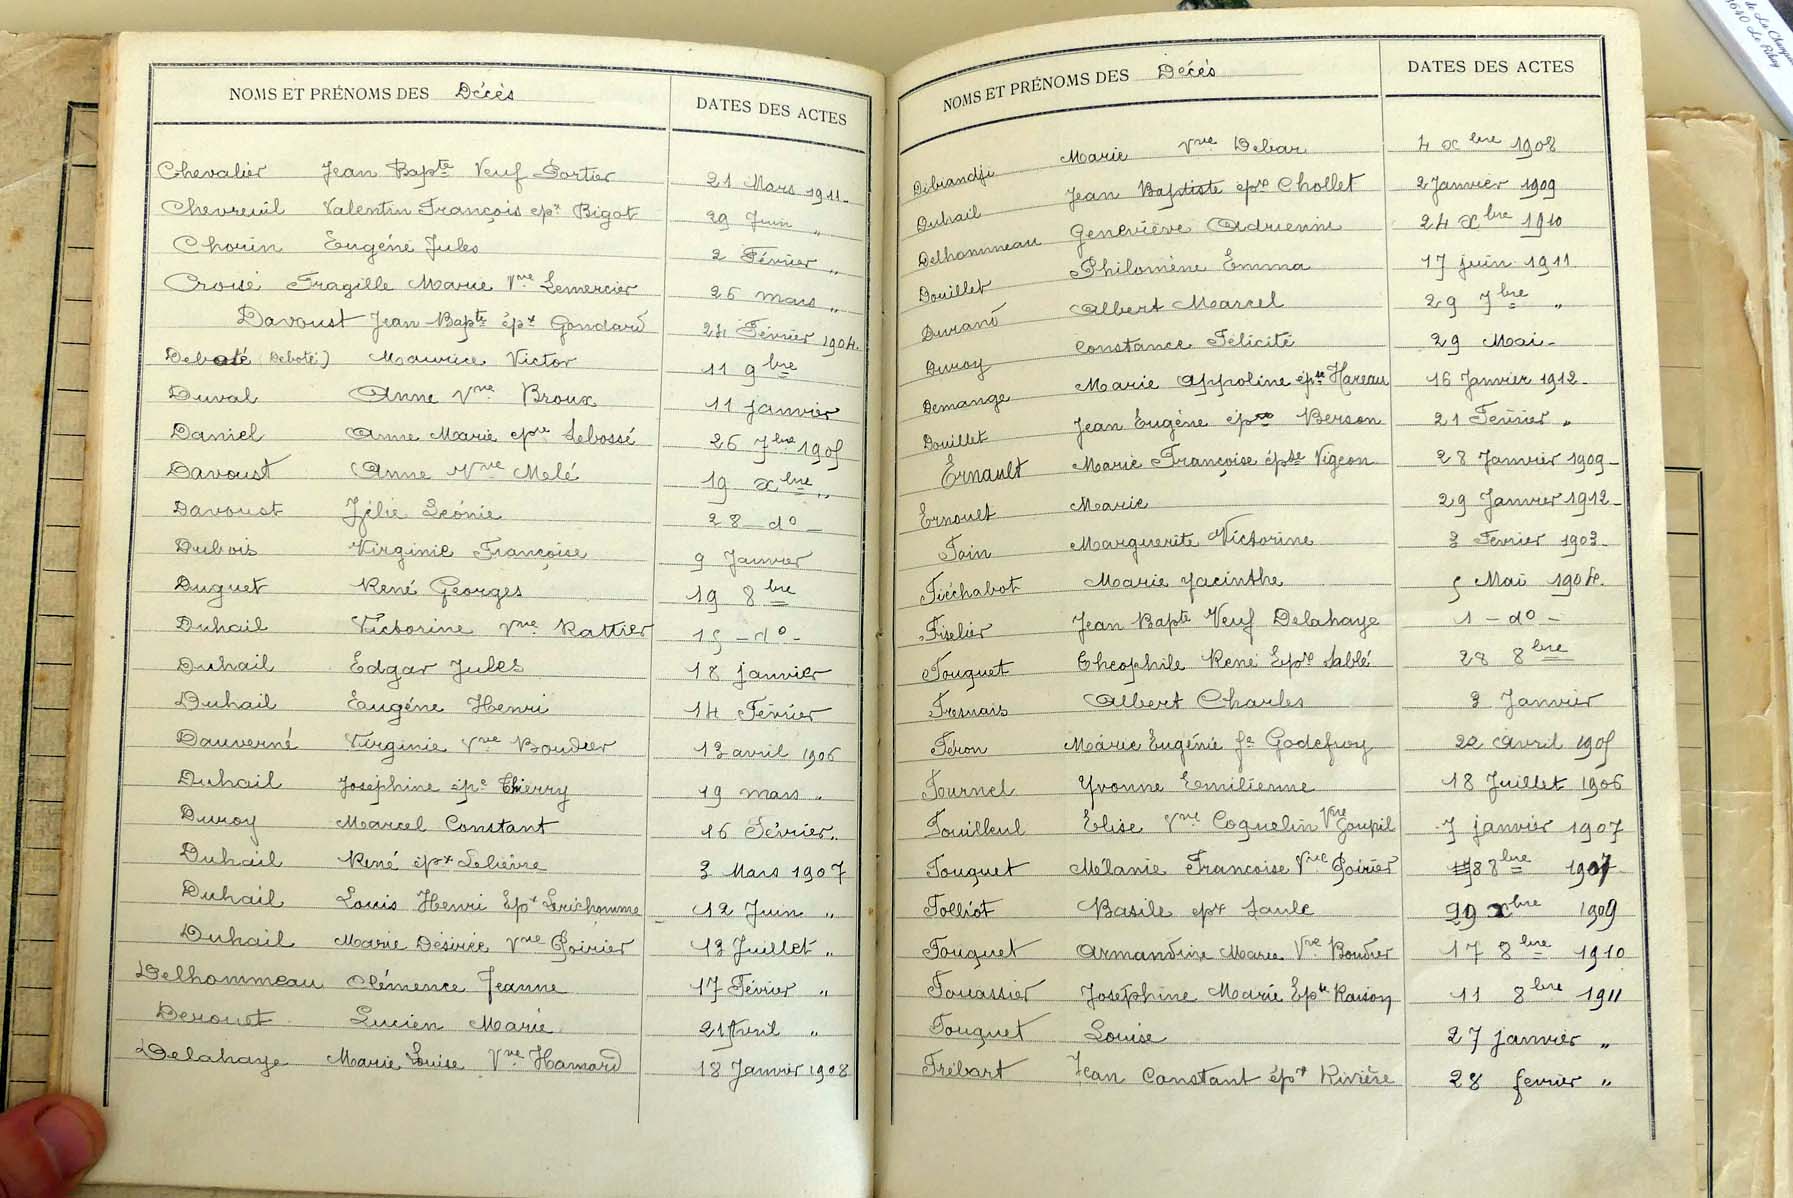 NOMS ET PRÉNOMS DES Décès DATES DES ACTES
Chevalier Jean Bapte Veuf Portier 21 Mars 1911
Chevreuil Valentin François epx Bigot 29 Juin "
Chorin Eugéné Jules 2 Février "
Croisé Fragille Marie Vve Lemercier 26 mars "
Davoust Jean Bapte épx Gondard 24 Février 1904.
Deboté (Deboté) Maurice Victor 11 9bre
Duval Anne Vve Broux 11 janvier
Daniel Anne Marie epse Lebossé 26 7bre 1905
Davoust Anne Vve Melé 19 xbre "
Davoust Zélie Léonie 28 - do -
Dubois Virginie Françoise 9 Janvier
Duguet René Georges 19 8bre
Duhail Victorine Vve Rattier 15 - do -
Duhail Edgar Jules 18 janvier
Duhail Eugéne Henri 14 Février
Dauverné Virginie Vve Boudier 13 avril 1906
Duhail Joséphine épse Thierry 19 mars "
Duroy Marcel Constant 16 Février "
Duhail René épx Lelièvre 3 Mars 1907
Duhail Louis Henri Epx Lerichomme 12 Juin "
Duhail Marie Désirée Vve Poirier 13 Juillet "
Delhommeau Clémence Jeanne 17 Février "
Derouet Lucien Marie 21 Avril "
Delahaye Marie Louise Vve Hamard 18 Janvier 1908
NOMS ET PRÉNOMS DES Décès DATES DES ACTES
Marie Vve Debar 4 xbre 1908
Duhail Jean Baptiste epx Chollet 2 Janvier 1909
Delhommeau Geneviève Adrienne 24 xbre 1910
Douillet Philomène Emma 17 juin 1911
Durand Albert Marcel 29 7bre "
Duroy Constance Félicité 29 Mai -
Demange Marie Appoline épse Hareau 16 Janvier 1912 -
Douillet Jean Eugéne épx Berson 21 Février "
Ernault Marie Françoise épse Vigeon 28 Janvier 1909 -
Ernouet Marie 29 Janvier 1912 -
Foin Marguerite Victorine 3 Février 1903 -
Fiéchabot Marie Jacinthe 5 Mai 1904.
Fiselier Jean Bapte Veuf Delahaye 1 - do -
Fouquet Théophile René Epx Sablé 28 8bre
Fresnais Albert Charles 3 Janvier
Féron Marie Eugénie fe Godefroy 22 Avril 1905
Fournel Yvonne Emilienne 18 Juillet 1906
Fouilleul Elise Vve Coquelin Vve Goupil 7 janvier 1907
Fouquet Mélanie Françoise Vve Poirier 8 8bre 1907
Folliot Basile epx Saule 29 xbre 1909
Fouquet Armandine Marie Vve Boudier 17 8bre 1910
Fouassier Joséphine Marie Epse Raison 11 8bre 1911
Fouquet Louise 27 janvier "
Frébart Jean Constant épx Rivière 28 fevrier "